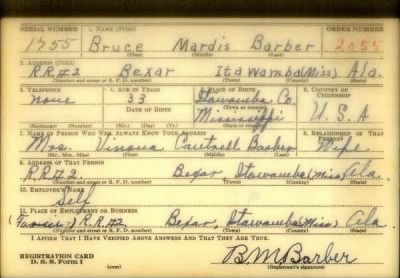 SERIAL NUMBER 1. NAME (Print) ORDER NUMBER
1755 Bruce Mardis Barber 2055
(First) (Middle) (Last)
2. ADDRESS (Print)
R.R.#2 Bexar Itawamba (Miss) Ala.
(Number and street or R. F. D. number) (Town) (County) (State)
3. TELEPHONE 4. AGE IN YEARS 5. PLACE OF BIRTH 6. COUNTRY OF CITIZENSHIP
none 33 Itawamba Co.
DATE OF BIRTH (Town or county)
Mississippi U.S.A
(Exchange) (Number) (Mo.) (Day) (Yr.) (State or country)
7. NAME OF PERSON WHO WILL ALWAYS KNOW YOUR ADDRESS 8. RELATIONSHIP OF THAT PERSON
Mrs. Vinona Cantrell Barber Wife
(Mr., Mrs., Miss) (First) (Middle) (Last)
9. ADDRESS OF THAT PERSON
R.R#2. Bexar, Itawamba (Miss) Ala.
(Number and street or R. F. D. number) (Town) (County) (State)
10. EMPLOYER'S NAME
Self
11. PLACE OF EMPLOYMENT OR BUSINESS
R.R#2 Bexar, Itawamba (Miss) Ala
(Number and street or R. F. D. number) (Town) (County) (State)
I AFFIRM THAT I HAVE VERIFIED ABOVE ANSWERS AND THAT THEY ARE TRUE.
REGISTRATION CARD B.M Barber
D. S. S. Form 1 (over) (Registrant's signature)